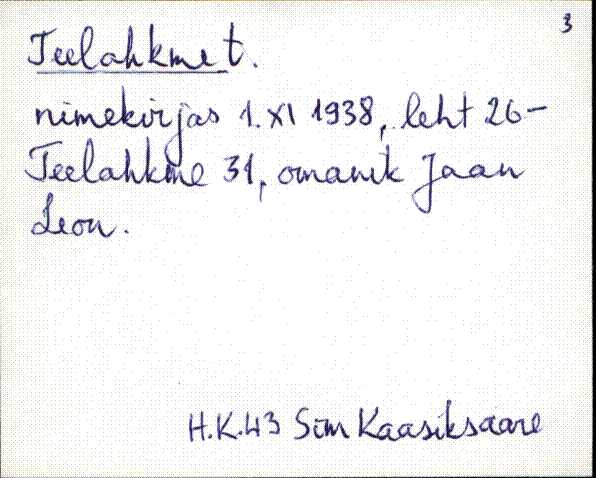 3
Teelahkme t.
nimekirjas 1. XI 1938, leht 26-
Teelahkme 31, omanik Jaan
Leon.
H.K.43 Siim Kaasiksaare